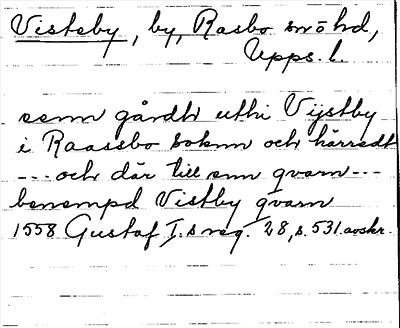 Visteby, by, Rasbo sn o hd,
Upps. l.
eenn gårdh uthi Vijstby
i Raassbo soknn och härredt
--- och där till enn qvarn ---
benempd Vistby qvarn
1558 Gustaf I.s reg. 28, s. 531. avskr.